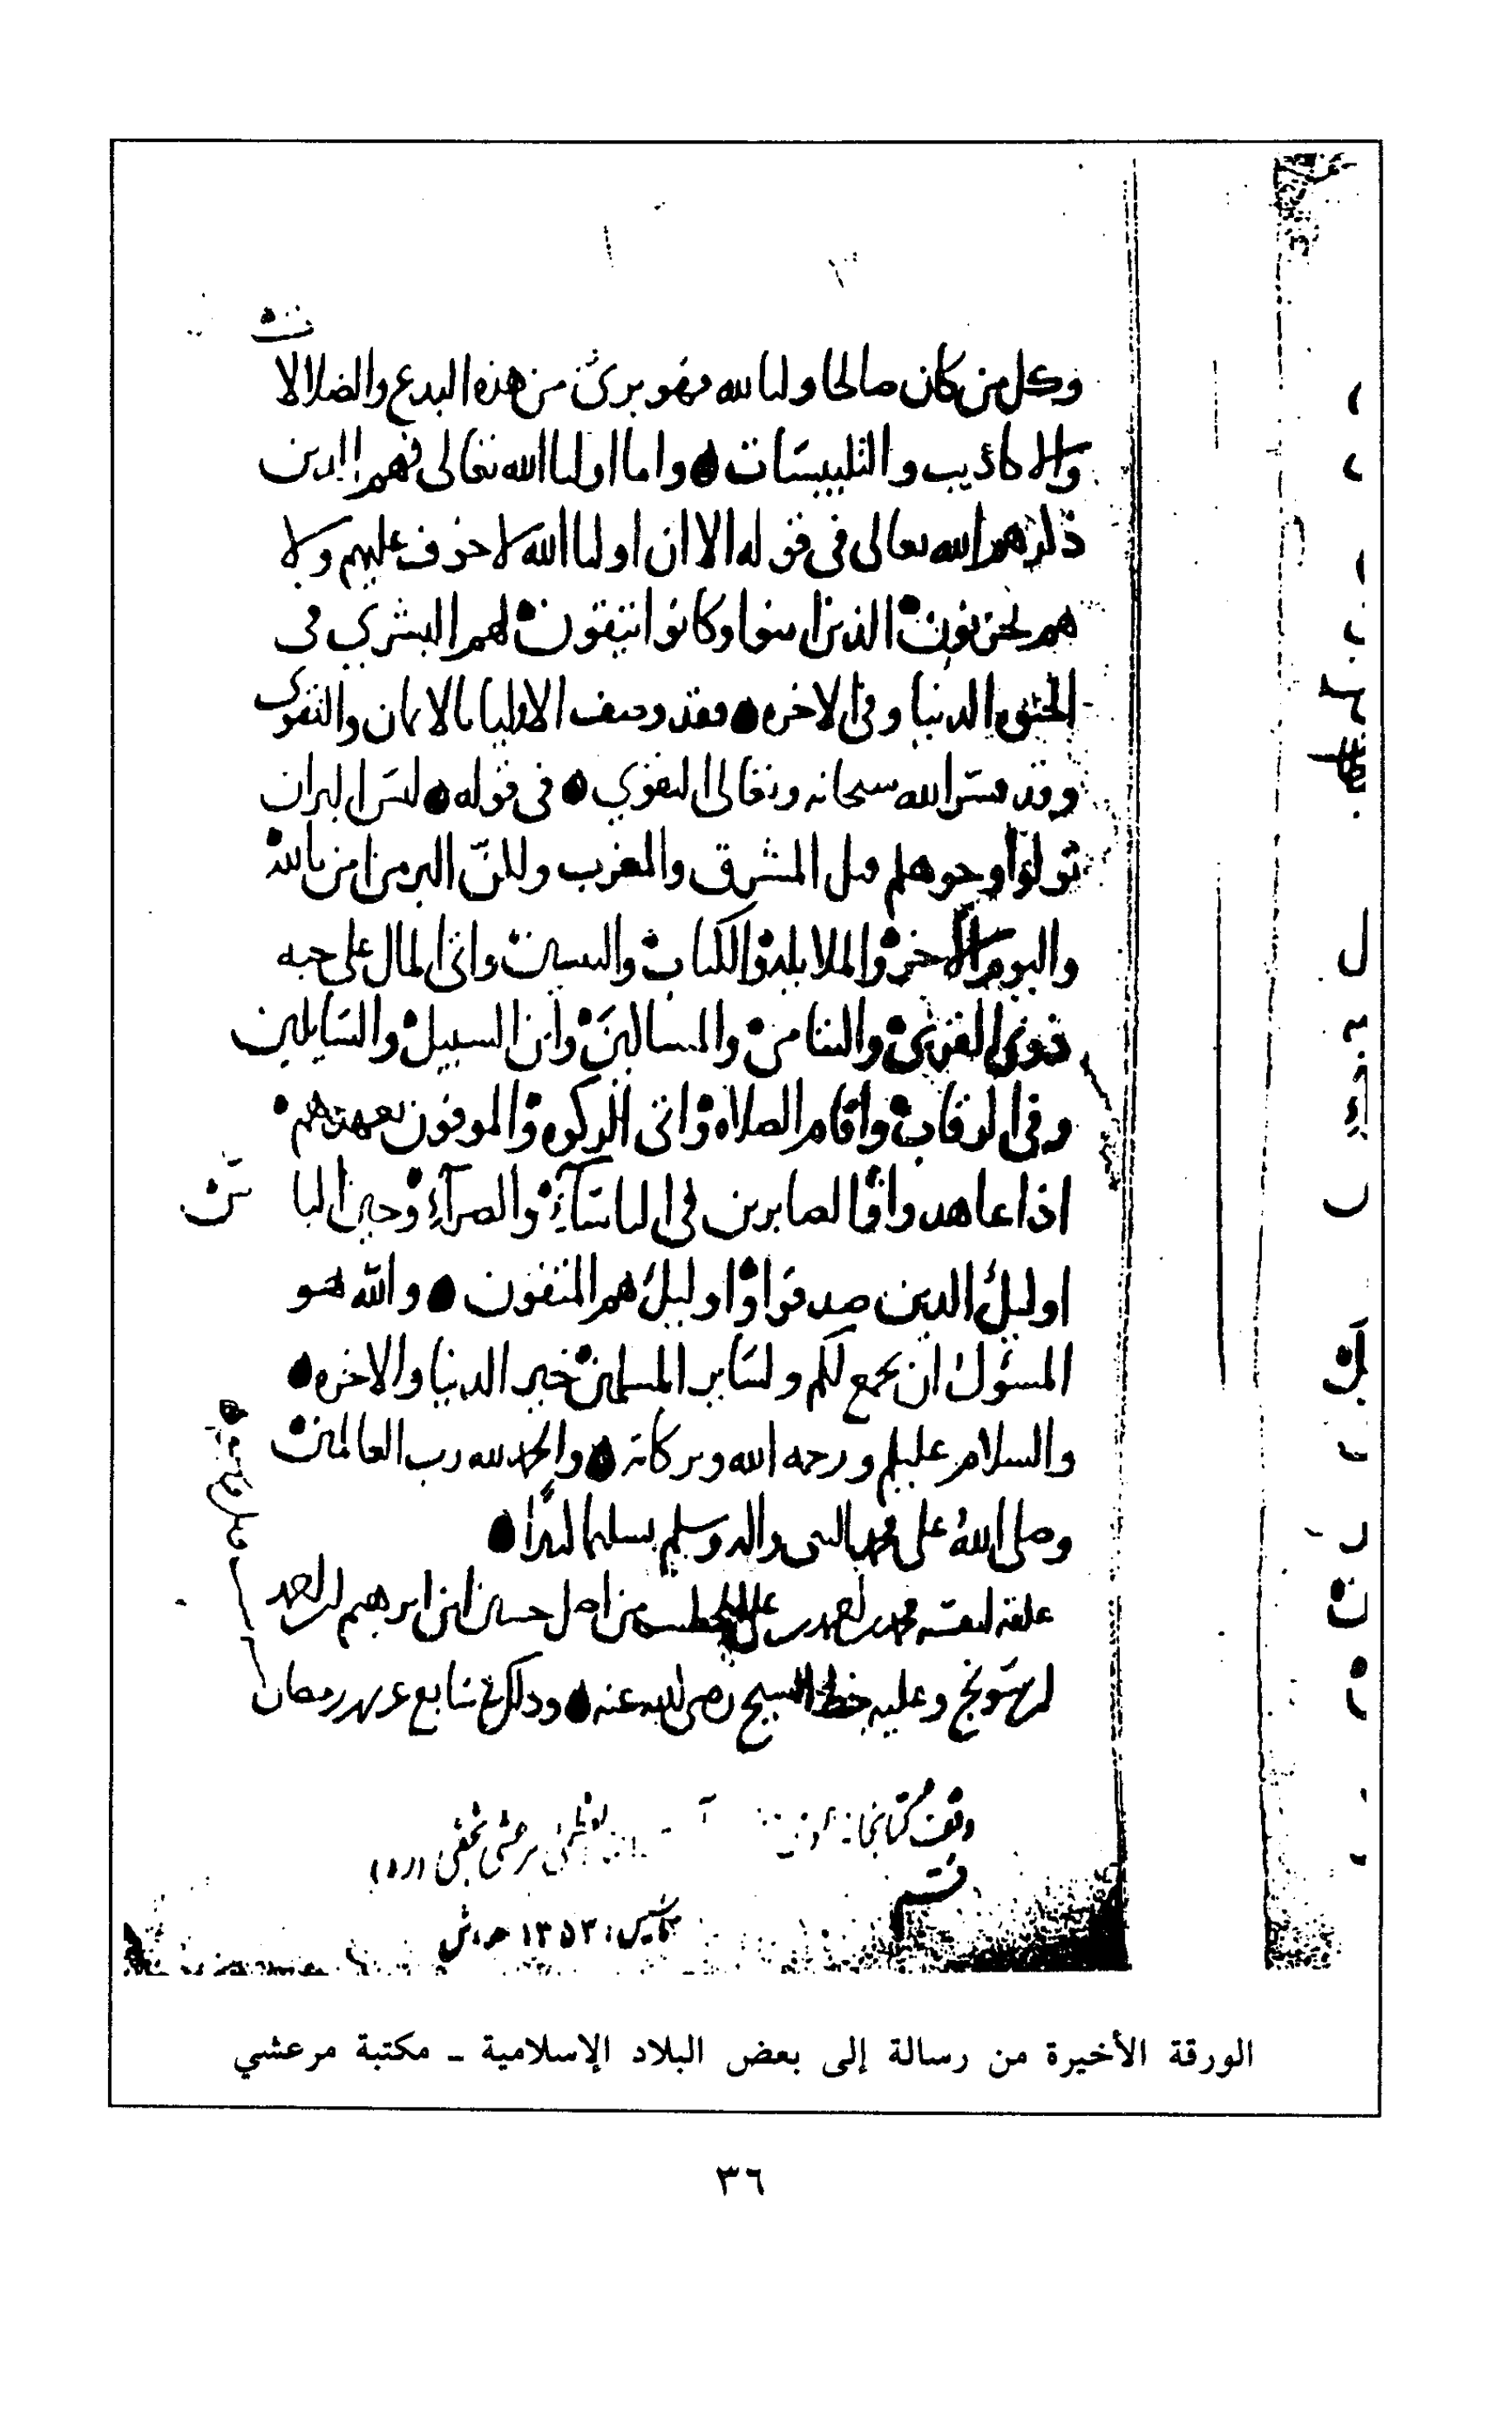 وكل من كان صالحا وليا لله فهو برئ من هذه البدع والضلالا
ت
والاكاذيب والتلبيسات واما اوليا الله تعالى فهم الدين
ذكرهم الله تعالى في قوله الا ان اوليا الله لا خوف عليهم ولا
هم يحزنون الذين امنوا وكانوا يتقون لهم البشري في
الحيوه الدنيا وفي الاخره فقد وصف الاوليا بالايمان والتقوى
وقد فسر الله سبحانه وتعالى التقوي في قوله ليس البر ان
تولوا وجوهكم قبل المشرق والمغرب ولكن البر من امن بالله
واليوم الاخر والملايكة والكتاب والنبيين واتى المال على حبه
ذوى القربى واليتامى والمساكين وابن السبيل والسايلين
وفي الرقاب واقام الصلاه واتى الزكوة والموفون بعهدهم
اذا عاهدوا والصابرين في الباساء والضراء وحين البا
س
اوليك الدين صدقوا واوليك هم المتقون والله هو
المسئول ان يجمع لكم ولساير المسلمين خير الدنيا والاخره
والسلام عليكم ورحمه الله وبركاته والحمد لله رب العالمين
وصلى الله على محمد النبي واله وسلم تسليما كثيرا
علقه لنفسه محمد بن علي الخطيب من اصل حسين ابن ابرهيم
وعليه خط الشيخ رضي الله عنه وذلك في سابع عشر رمضان
وقف كتابخانه مرعشي نجفي (ره)
قم
تأسيس: ١٣٥٣ هـ.ش
الورقة الأخيرة من رسالة إلى بعض البلاد الإسلامية ـ مكتبة مرعشي
٣٦